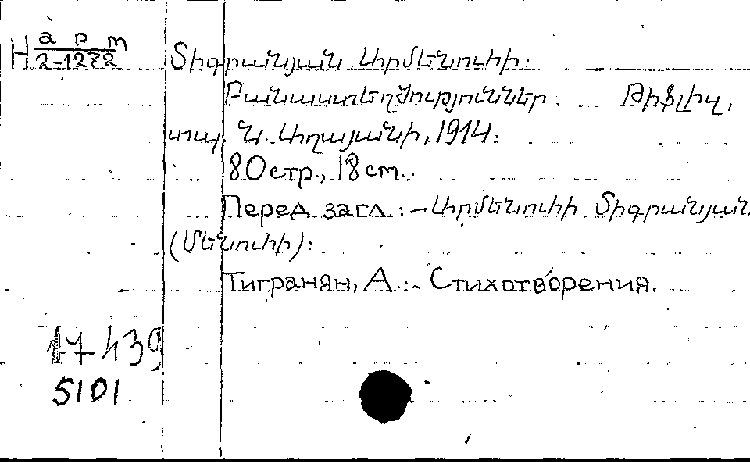 Н а р т
2-1272
Տիգրանյան Արմենուհի.
Բանաստեղծություններ. Թիֆլիզ,
տպ. Ն. Աղայանի, 1914.
80стр., 18cm.
Перед загл.:-Արմենուհի Տիգրանյան
(Մենուհի):
Тигранян, А.:- Стихотворения.
17439
5101